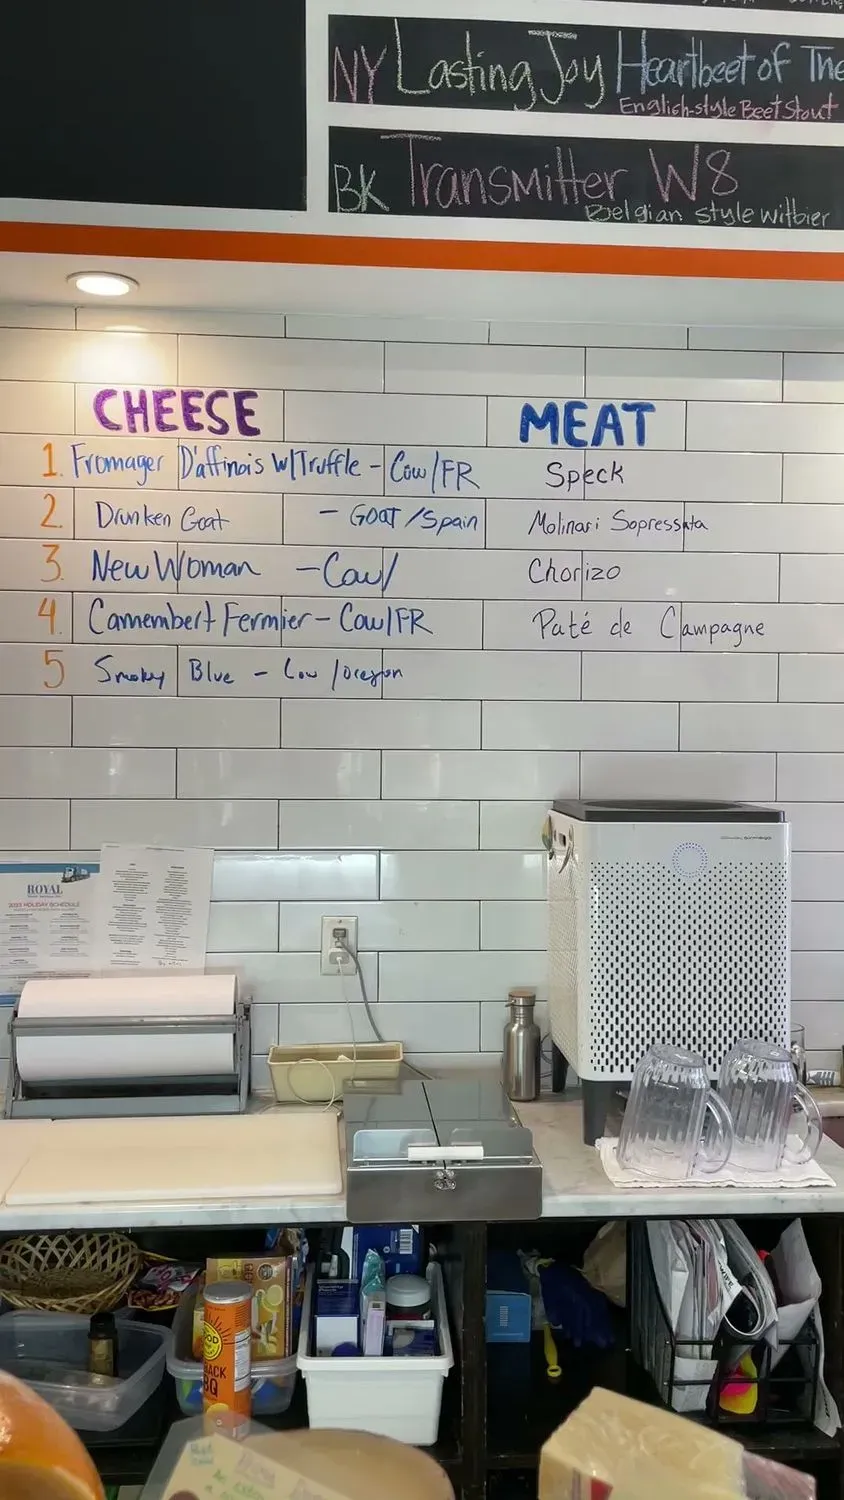 NY Lasting Joy Heartbeet of The
English-style Beet Stout
BK Transmitter W8
Belgian style witbier
CHEESE
1. Fromager D'affinois w/Truffle - Cow/FR
2. Drunken Goat - GOAT/Spain
3. New Woman - Cow/
4. Camembert Fermier - Cow/FR
5 Smokey Blue - Cow/Oregon
MEAT
Speck
Molinari Sopressata
Chorizo
Paté de Campagne
ROYAL
2023 HOLIDAY SCHEDULE